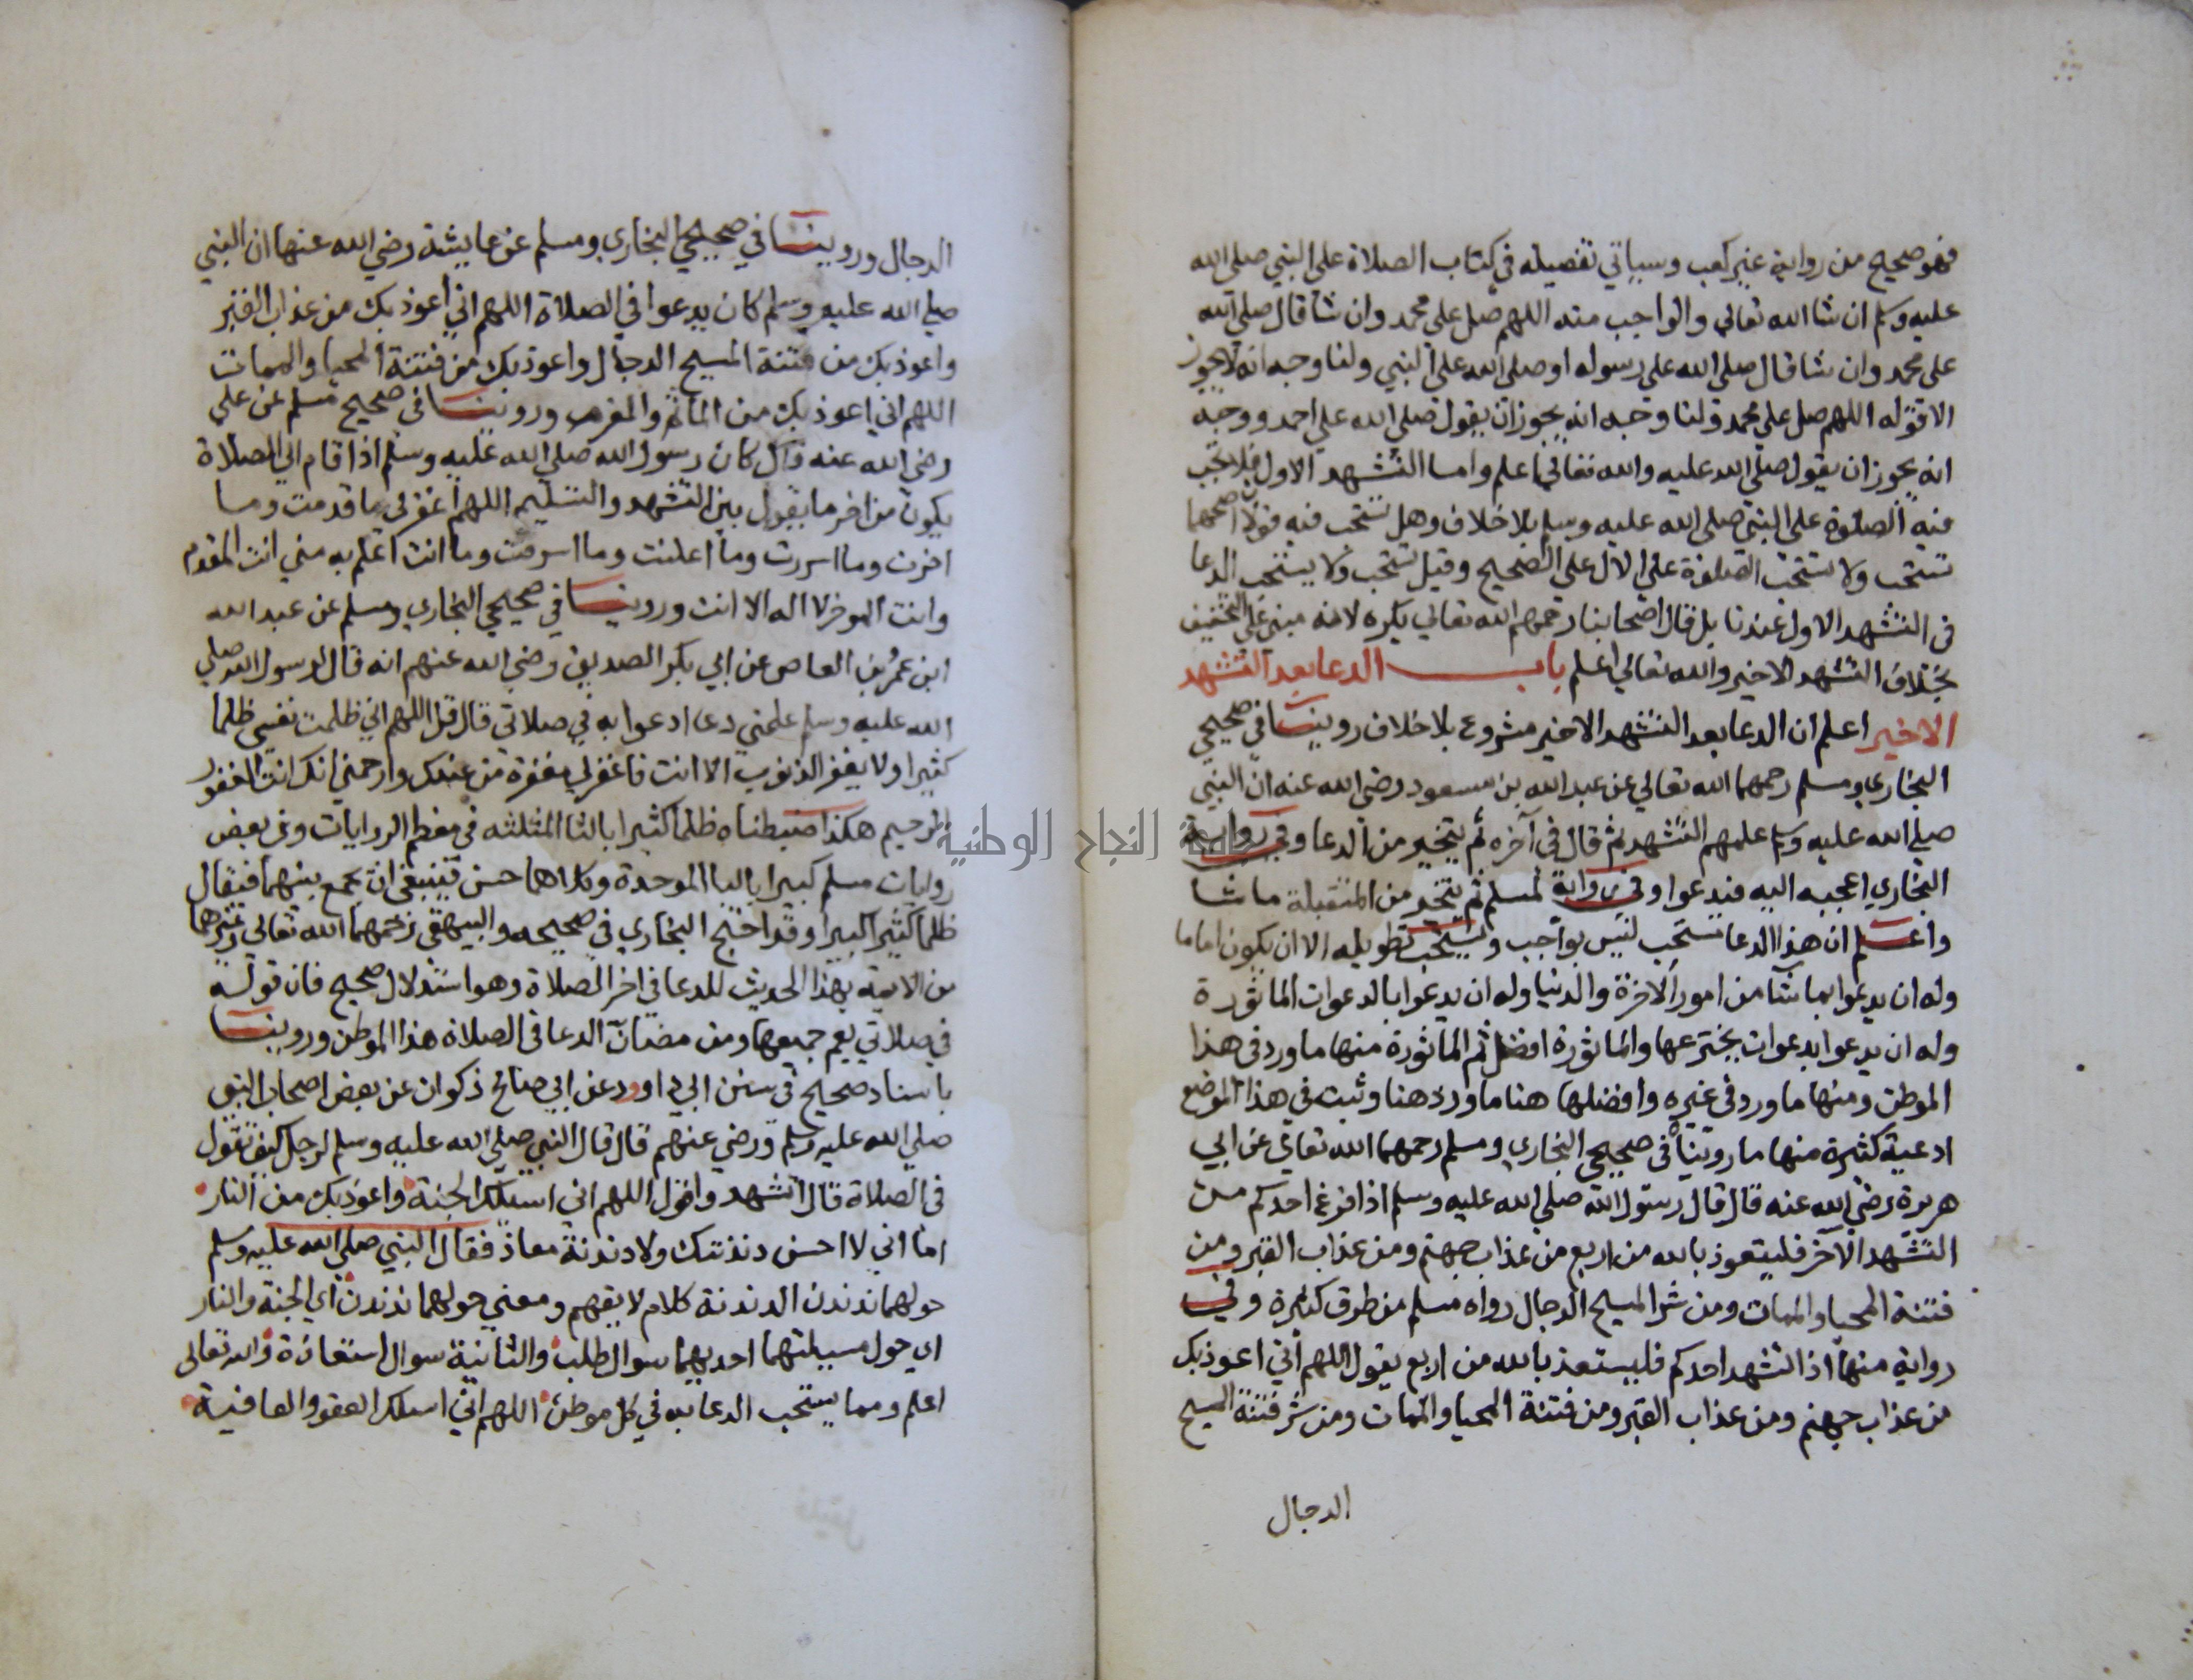 فهو صحيح من رواية غير كعب وسياتي تفصيله في كتاب الصلاة على النبي صلى الله
عليه وسلم ان شا الله تعالى والواجب منه اللهم صل على محمد وان شا قال صلى الله
على محمد وان شا قال صلى الله على رسوله او صلى الله على النبي ولنا وجه انه لا يجوز
الا قوله اللهم صل على محمد ولنا وجه انه يجوز ان يقول صلى الله على احمد ووجه
انه يجوز ان يقول صلى الله عليه والله تعالى اعلم واما التشهد الاول فلا تجب
فيه الصلوة على النبي صلى الله عليه وسلم بلا خلاف وهل تستحب فيه قولان اصحهما
تستحب ولا تستحب الصلوة على الال على الصحيح وقيل تستحب ولا يستحب الدعا
في التشهد الاول عندنا بل قال اصحابنا رحمهم الله تعالى يكره لانه مبني على التخفيف
بخلاف التشهد الاخير والله تعالى اعلم باب الدعا بعد التشهد
الاخير اعلم ان الدعا بعد التشهد الاخير مشروع بلا خلاف روينا في صحيحي
البخاري ومسلم رحمهما الله تعالى عن عبد الله بن مسعود رضي الله عنه ان النبي
صلى الله عليه وسلم علمهم التشهد ثم قال في آخره ثم يتخير من الدعا وفي رواية
البخاري اعجبه اليه فيدعوا وفي رواية لمسلم ثم يتخير من المسئلة ما شا
واعلم ان هذا الدعا مستحب ليس بواجب ويستحب تطويله الا ان يكون اماما
وله ان يدعوا بما شآ من امور الاخرة والدنيا وله ان يدعوا بالدعوات الماثورة
وله ان يدعوا بدعوات يخترعها والماثورة افضل ثم الماثورة منها ما ورد في هذا
الموطن ومنها ما ورد في غيره وافضلها هنا ما ورد هنا وثبت في هذا الموضع
ادعية كثيرة منها ما روينا في صحيحي البخاري ومسلم رحمهما الله تعالى عن ابي
هريرة رضي الله عنه قال قال رسول الله صلى الله عليه وسلم اذا فرغ احدكم من
التشهد الاخر فليتعوذ بالله من اربع من عذاب جهنم ومن عذاب القبر ومن
فتنة المحيا والممات ومن شر المسيح الدجال رواه مسلم من طرق كثيرة وفي
رواية منها اذا تشهد احدكم فليستعذ بالله من اربع يقول اللهم اني اعوذ بك
من عذاب جهنم ومن عذاب القبر ومن فتنة المحيا والممات ومن شر فتنة المسيح
الدجال
الدجال وروينا في صحيحي البخاري ومسلم عن عايشة رضي الله عنها ان النبي
صلى الله عليه وسلم كان يدعوا في الصلاة اللهم اني اعوذ بك من عذاب القبر
واعوذ بك من فتنة المسيح الدجال واعوذ بك من فتنة المحيا والممات
اللهم اني اعوذ بك من الماثم والمغرم وروينا في صحيح مسلم عن علي
رضي الله عنه قال كان رسول الله صلى الله عليه وسلم اذا قام الى الصلاة
يكون من اخر ما يقول بين التشهد والتسليم اللهم اغفر لي ما قدمت وما
اخرت وما اسررت وما اعلنت وما اسرفت وما انت اعلم به مني انت المقدم
وانت الموخر لا اله الا انت وروينا في صحيحي البخاري ومسلم عن عبد الله
ابن عمرو بن العاص عن ابي بكر الصديق رضي الله عنهم انه قال لرسول الله صلى
الله عليه وسلم علمني دعا ادعوا به في صلاتي قال قل اللهم اني ظلمت نفسي ظلما
كثيرا ولا يغفر الذنوب الا انت فاغفر لي مغفرة من عندك وارحمني انك انت الغفور
الرحيم هكذا ضبطناه ظلما كثيرا بالثا المثلثه في معظم الروايات وفي بعض
روايات مسلم كبيرا بالبا الموحدة وكلاهما حسن فينبغي ان يجمع بينهما فيقال
ظلما كثيرا كبيرا وقد احتج البخاري في صحيحه والبيهقي رحمهما الله تعالى وغيرهما
من الايمة بهذا الحديث للدعا في اخر الصلاة وهو استدلال صحيح فان قوله
في صلاتي يعم جميعها ومن مضان الدعا في الصلاة هذا الموطن وروينا
باسناد صحيح في سنن ابي داوود عن ابي صالح ذكوان عن بعض اصحاب النبي
صلى الله عليه وسلم ورضي عنهم قال قال النبي صلى الله عليه وسلم لرجل كيف تقول
في الصلاة قال اتشهد واقول اللهم اني اسئلك الجنة واعوذ بك من النار
اما اني لا احسن دندنتك ولا دندنة معاذ فقال النبي صلى الله عليه وسلم
حولهما ندندن الدندنة كلام لا يفهم ومعنى حولهما ندندن اي الجنة والنار
اي حول مسيلتهما احديهما سوال طلب والثانية سوال استعاذة والله تعالى
اعلم ومما يستحب الدعا به في كل موطن اللهم اني اسلك العفو والعافية
جامعة النجاح الوطنية